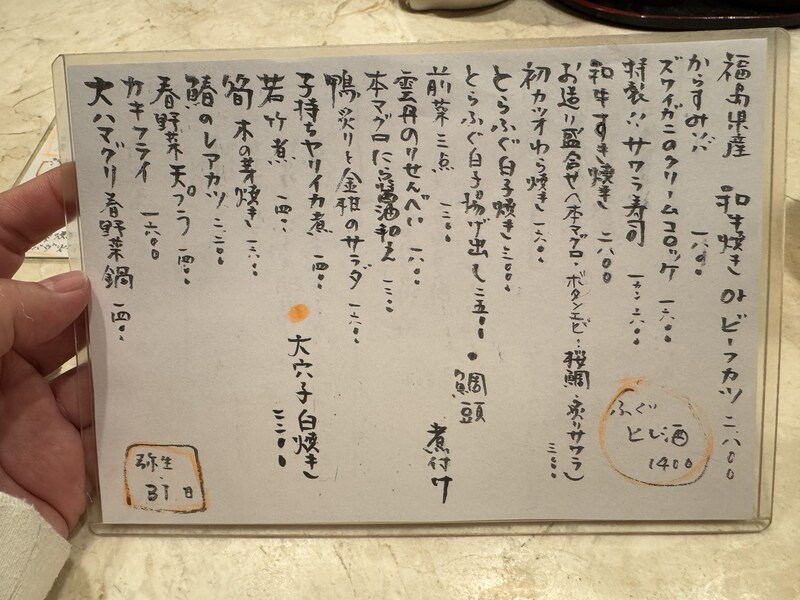 福島県産 和牛焼き or ビーフカツ 二八〇〇
からすみソバ 一八〇〇
ズワイガニのクリームコロッケ 一六〇〇
特製!! サワラ寿司 一カン 六〇〇
和牛すき焼き 二八〇〇
お造り盛合せ(本マグロ・ボタンエビ・桜鯛・炙りサワラ) 三〇〇〇
初カツオわら焼き 一六〇〇
とらふぐ白子焼き 三〇〇〇
とらふぐ白子揚げ出し 二五〇〇
・鯛頭 煮付け
前菜三点 一二〇〇
雲丹のりせんべい 一八〇〇
本マグロにら醤油和え 一二〇〇
鴨炙りと金柑のサラダ 一六〇〇
子持ちヤリイカ煮 一四〇〇
大穴子白焼き 二二〇〇
若竹煮 一四〇〇
筍木の芽焼き 一六〇〇
鰆のレアカツ 二二〇〇
春野菜天ぷら 一四〇〇
カキフライ 一六〇〇
大ハマグリ春野菜鍋 一四〇〇
ふぐ
ヒレ酒
1400
弥生
31日